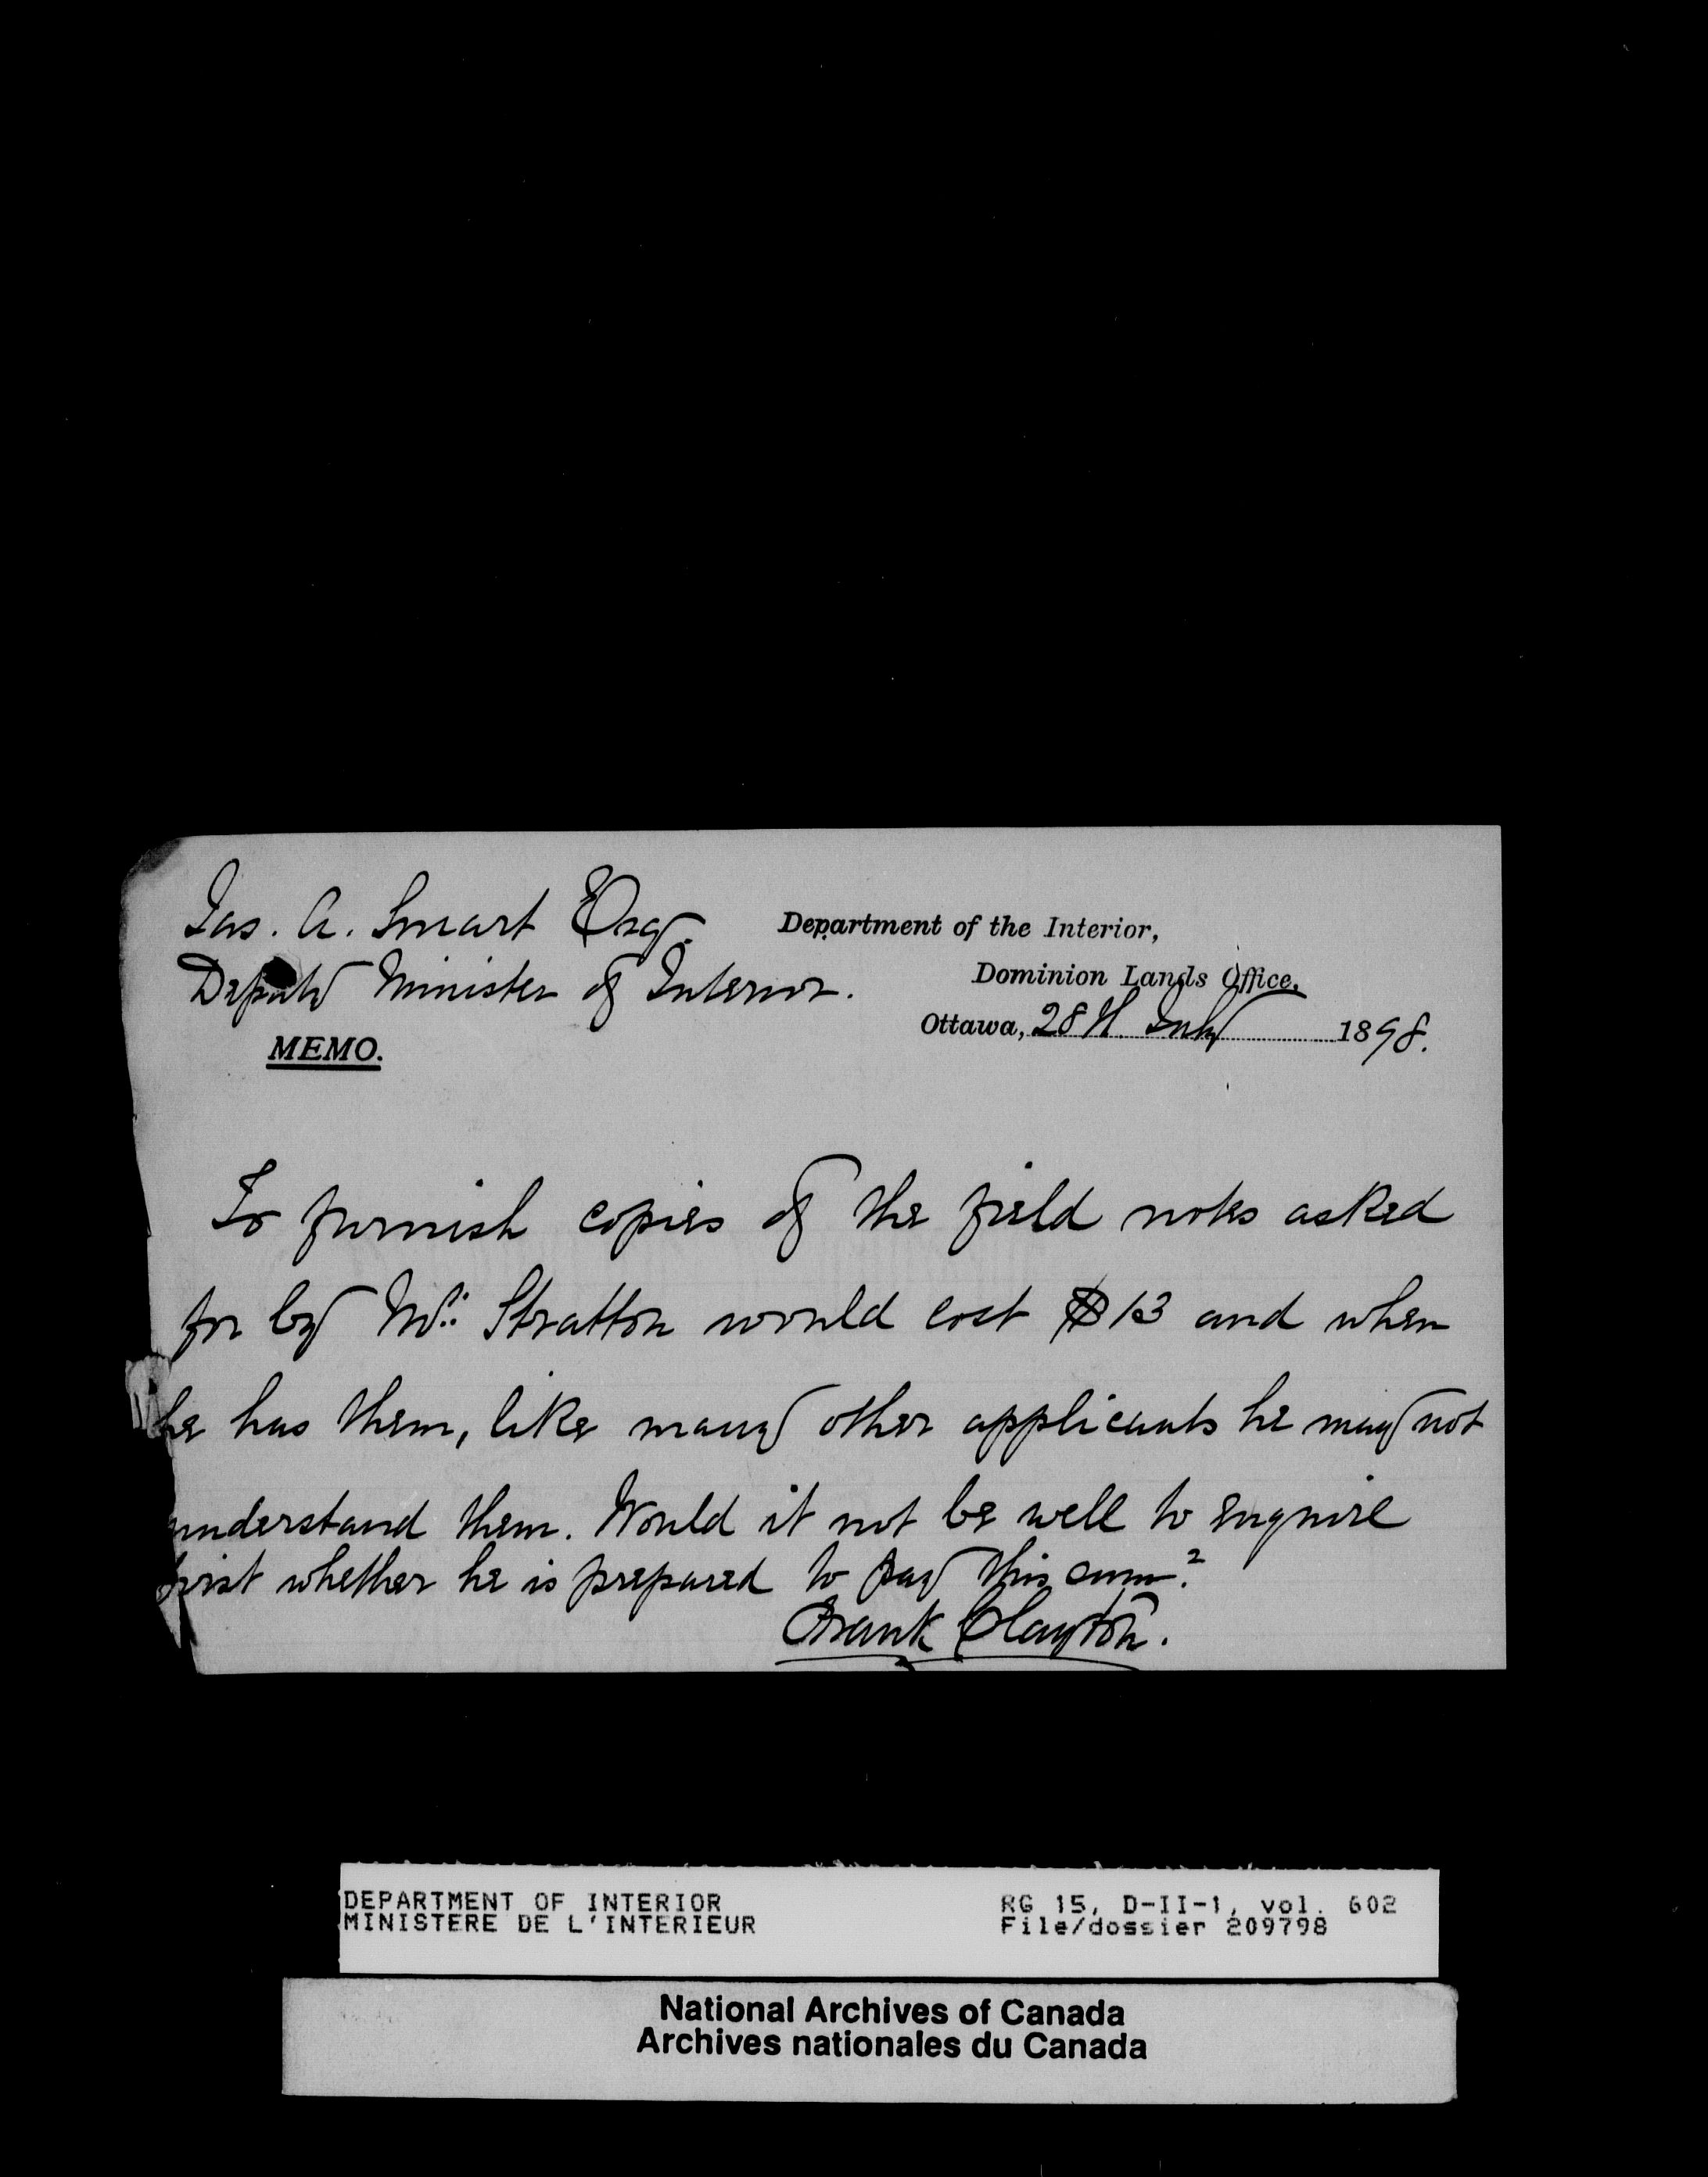 Jas. A. Smart Esq.
Deputy Minister of Interior.
MEMO.
Department of the Interior,
Dominion Lands Office,
Ottawa, 28th July 1898.
To furnish copies of the field notes asked
for by Mr. Stratton would cost $13 and when
he has them, like many other applicants he may not
understand them. Would it not be well to enquire
first whether he is prepared to pay this sum?
Frank Clayton.
DEPARTMENT OF INTERIOR
MINISTERE DE L'INTERIEUR
RG 15, D-II-1, vol. 602
File/dossier 209798
National Archives of Canada
Archives nationales du Canada